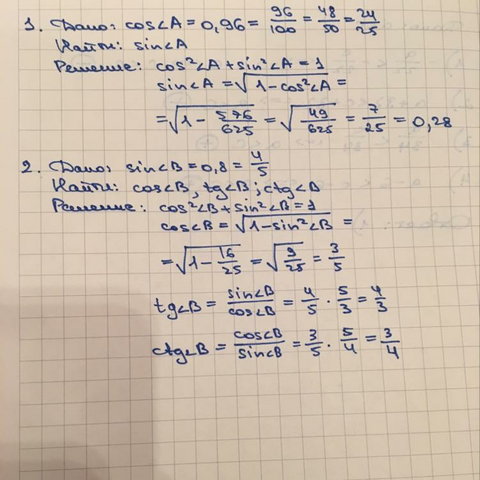 1. Дано: cos∠A = 0,96 = 96/100 = 48/50 = 24/25
Найти: sin∠A
Решение: cos²∠A + sin²∠A = 1
sin∠A = √(1 - cos²∠A) =
= √(1 - 576/625) = √(49/625) = 7/25 = 0,28
2. Дано: sin∠B = 0,8 = 4/5
Найти: cos∠B, tg∠B; ctg∠B
Решение: cos²∠B + sin²∠B = 1
cos∠B = √(1 - sin²∠B) =
= √(1 - 16/25) = √(9/25) = 3/5
tg∠B = sin∠B/cos∠B = 4/5 · 5/3 = 4/3
ctg∠B = cos∠B/sin∠B = 3/5 · 5/4 = 3/4